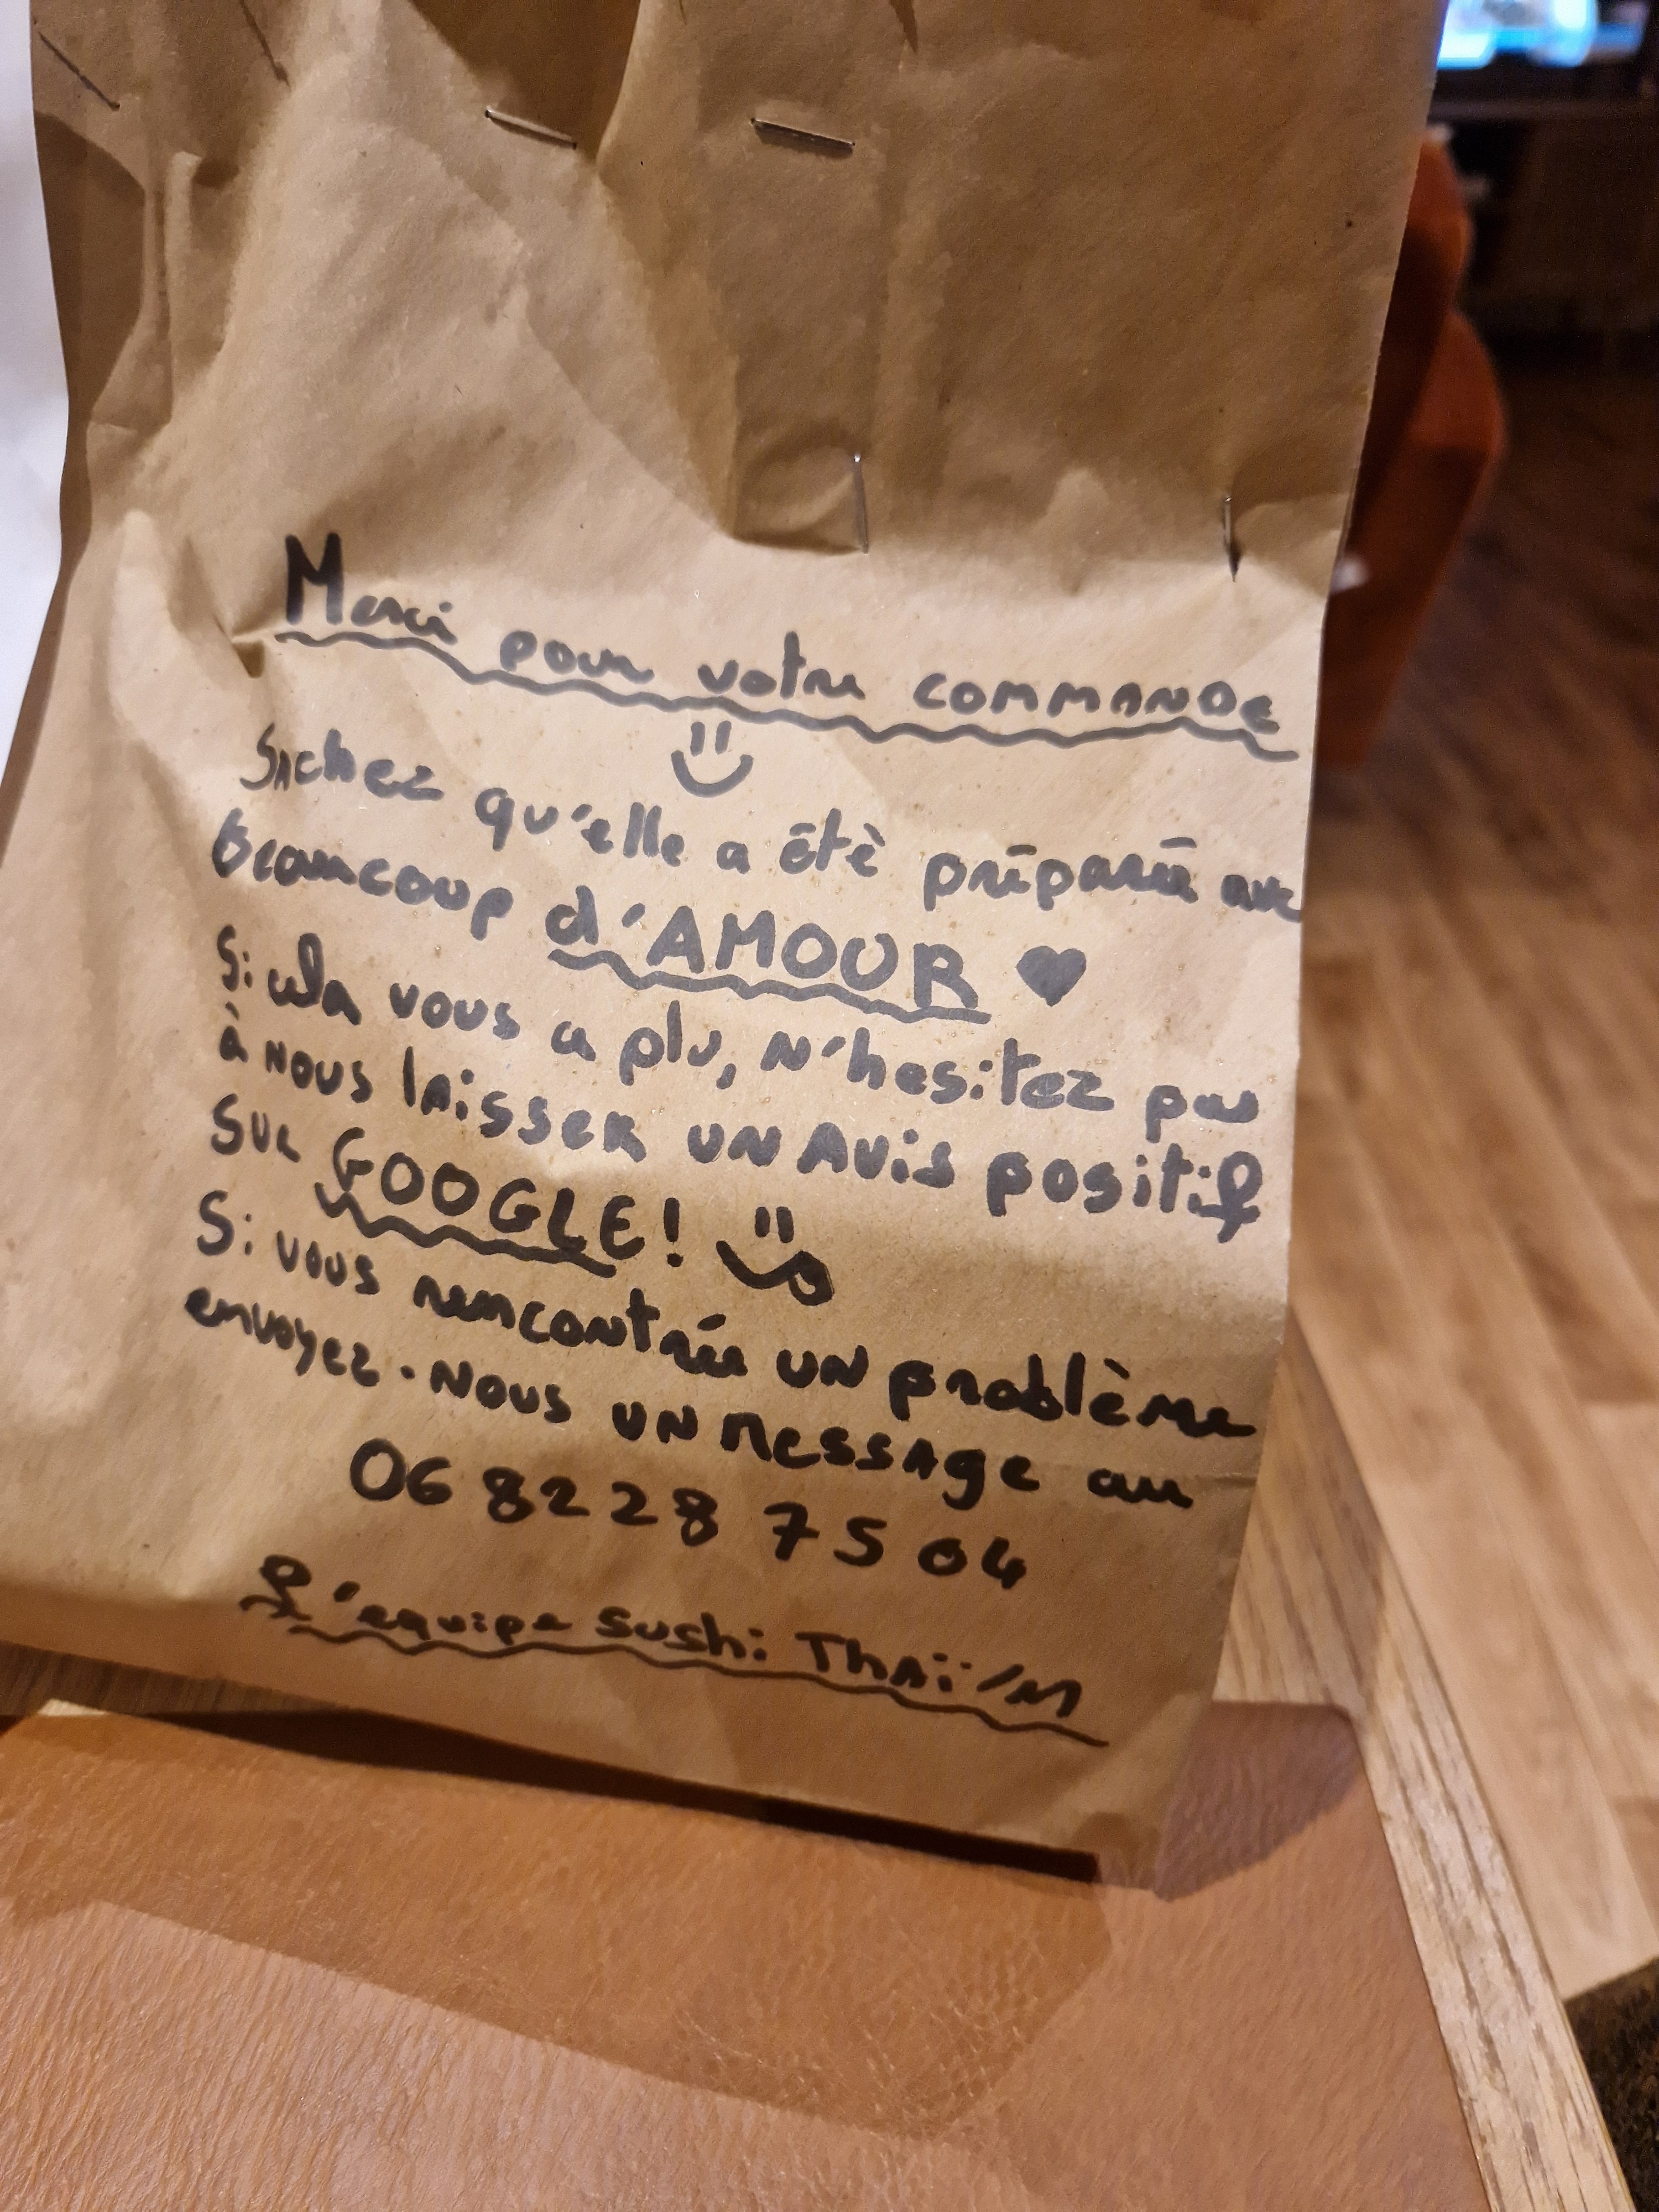 Merci pour votre commande
Sachez qu'elle a été préparée avec
beaucoup d'AMOUR ♥
Si cela vous a plu, n'hesitez pas
à nous laisser un avis positif
sur GOOGLE!
Si vous rencontrée un problème
envoyez-nous un message au
06 82 28 75 04
L'équipe Sushi Thaï'M